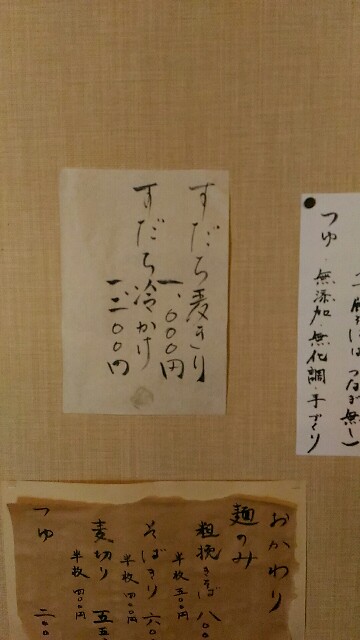 すだち麦きり
一、〇〇〇円
すだち冷かけ
一、二〇〇円
つなぎ無し
つゆ・無添加・無化調・手づくり
おかわり
麺のみ
粗挽きそば 八〇〇
半枚 五〇〇円
そばきり 六〇
半枚 四〇〇円
麦切り 五五
半枚 四〇〇円
つゆ 二〇〇